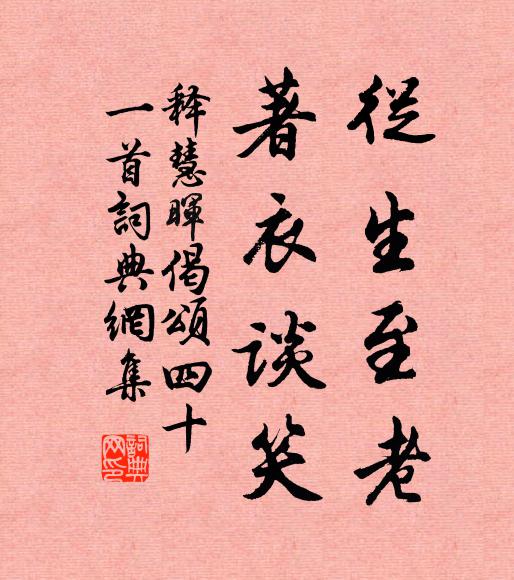 從生至老
著衣談笑
释慧暉偈頌四十
一首詞典網集
詞典
网印